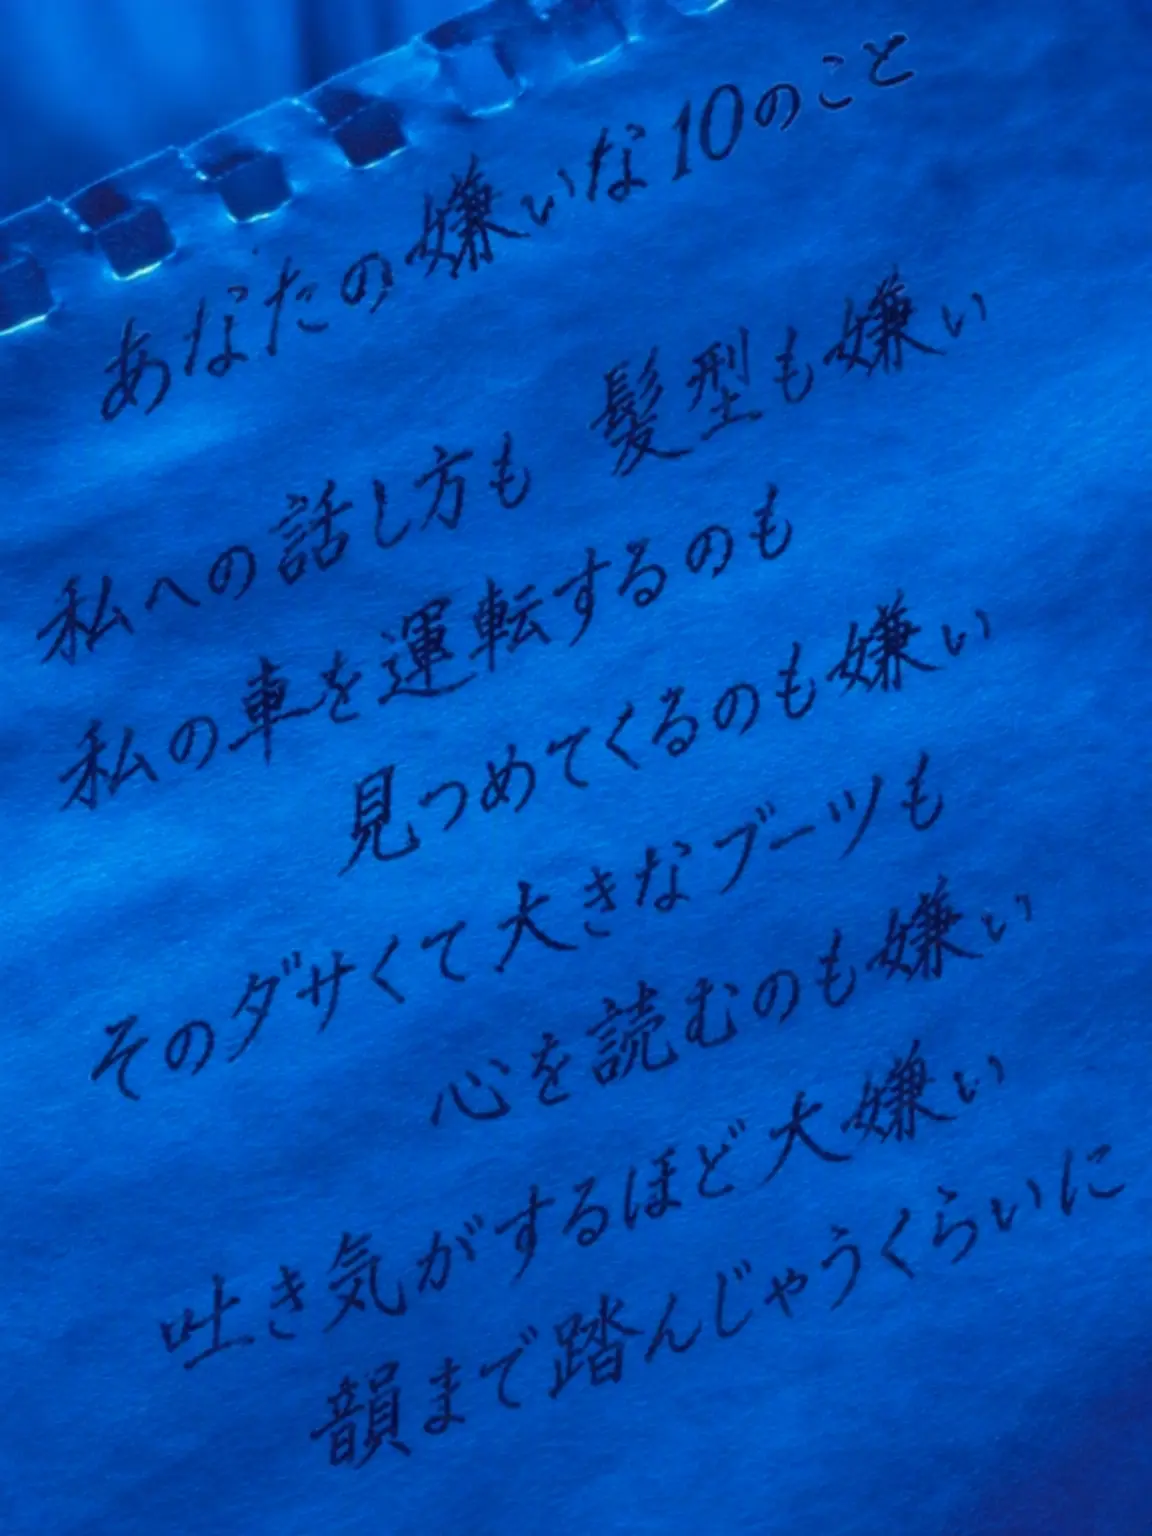 あなたの嫌いな10のこと
私への話し方も　髪型も嫌い
私の車を運転するのも
見つめてくるのも嫌い
そのダサくて大きなブーツも
心を読むのも嫌い
吐き気がするほど大嫌い
韻まで踏んじゃうくらいに